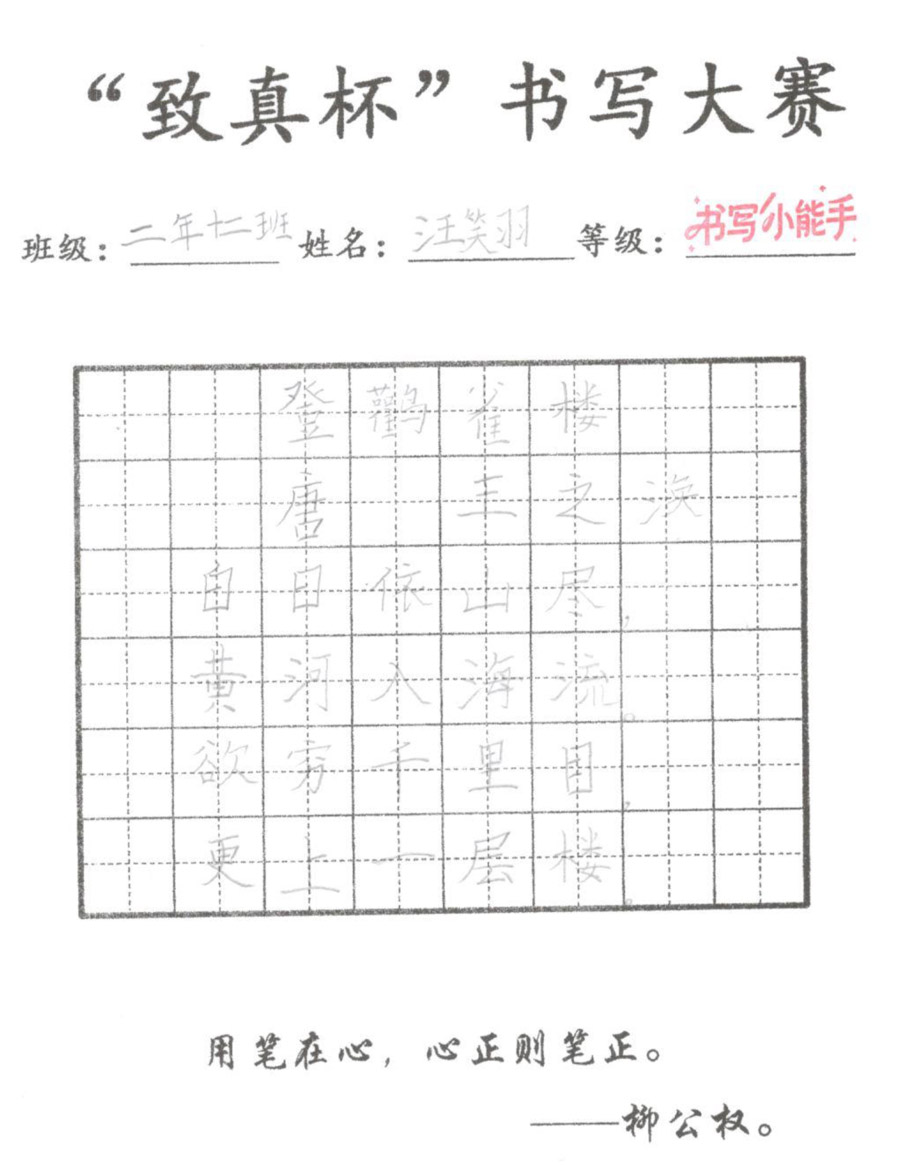 “致真杯”书写大赛
班级：二年十二班 姓名：汪笑羽 等级：书写小能手
登鹳雀楼
唐 王之涣
白日依山尽，
黄河入海流。
欲穷千里目，
更上一层楼。
用笔在心，心正则笔正。
——柳公权。